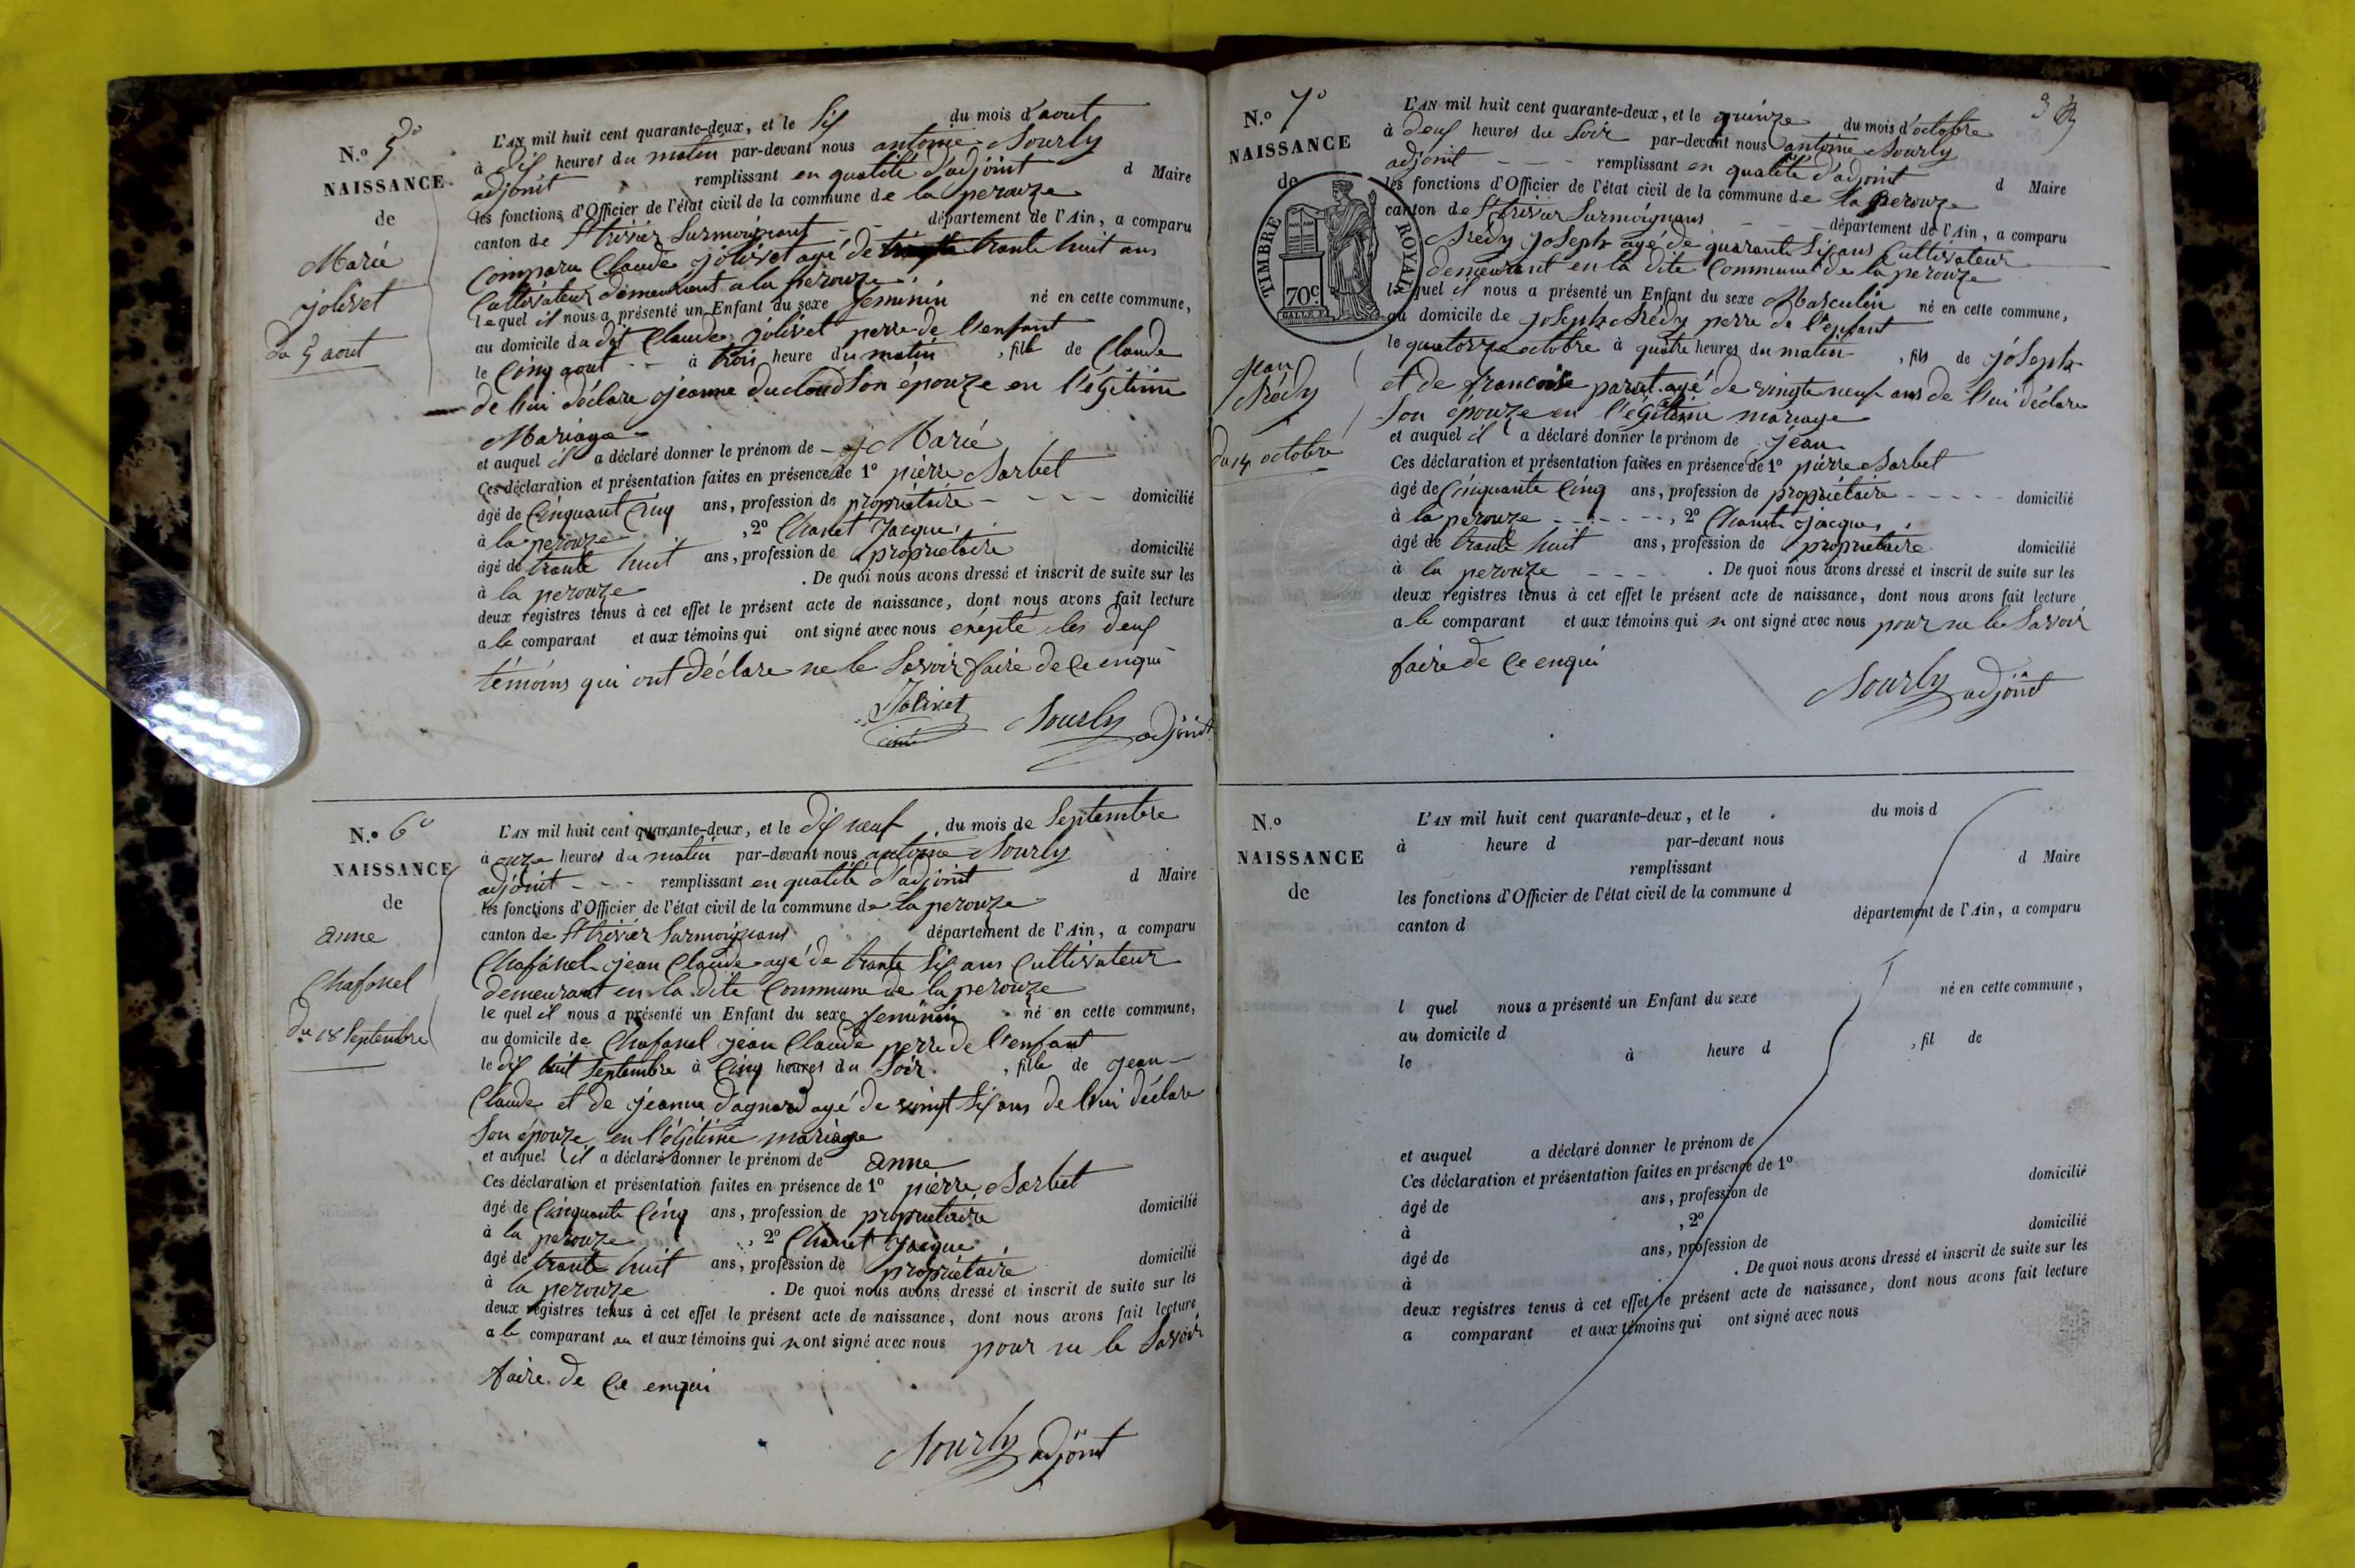 N.º 5º
NAISSANCE
de
Marie
jolivet
du 5 aout
L'AN mil huit cent quarante-deux, et le Six du mois d'aout
à dix heures du matin par-devant nous antoine Sourly
adjoint remplissant en qualité d'adjoint d Maire
les fonctions d'Officier de l'état civil de la commune de la perouze
canton de St trivier Surmoignant département de l'Ain, a comparu
Comparu Claude jolivet agé de trante huit ans
Cultivateur demeurant a la perouze
lequel il nous a présenté un Enfant du sexe feminin né en cette commune,
au domicile du dit Claude jolivet perre de l'enfant
le Cinq aout à trois heure du matin, fille de Claude
de lui déclare jeanne ducloud Son épouze en l'égitime
Mariage
et auquel il a déclaré donner le prénom de Marie
Ces déclaration et présentation faites en présence de 1º pierre Sorbet
âgé de Cinquant Cinq ans, profession de propriétaire domicilié
à la perouze, 2º Chanet Jacque
âgé de trante huit ans, profession de proprietaire domicilié
à la perouze. De quoi nous avons dressé et inscrit de suite sur les
deux registres tenus à cet effet le présent acte de naissance, dont nous avons fait lecture
a le comparant et aux témoins qui ont signé avec nous exepté les deux
témoins qui ont déclare ne le Savoir faire de Ce enqui
Jolivet Sourly adjoint
N.º 6º
NAISSANCE
de
anne
Chafonel
du 18 Septembre
L'AN mil huit cent quarante-deux, et le dix neuf du mois de Septembre
à onze heures du matin par-devant nous antoine Sourly
adjoint - - - remplissant en qualité d'adjoint d Maire
les fonctions d'Officier de l'état civil de la commune de la perouze
canton de St trivier Surmoignans département de l'Ain, a comparu
Chafanel jean Claude agé de trante Six ans Cultivateur
demeurant en la dite Commune de la perouze
le quel il nous a présenté un Enfant du sexe feminin né en cette commune,
au domicile de Chafanel jean Claude perre de l'enfant
le dix huit Septembre à Cinq heures du Soir, fille de jean
Claude et de jeanne dagnard agé de vingt Six ans de lui déclare
Son épouze en l'égitime mariage
et auquel il a déclaré donner le prénom de anne
Ces déclaration et présentation faites en présence de 1º pierre Sorbet
âgé de Cinquante Cinq ans, profession de proprietaire domicilié
à la perouze, 2º Chanet Jacque
âgé de trante huit ans, profession de propriétaire domicilié
à la perouze. De quoi nous avons dressé et inscrit de suite sur les
deux registres tenus à cet effet le présent acte de naissance, dont nous avons fait lecture
a le comparant au et aux témoins qui n ont signé avec nous pour ne le Savoir
faire de Ce enqui
Sourly adjoint
N.º 7º
NAISSANCE
de
TIMBRE ROYAL
70c
jean
du 14 octobre
L'AN mil huit cent quarante-deux, et le quinze du mois d'octobre
à deux heures du Soir par-devant nous antoine Sourly
adjoint - - - remplissant en qualité d'adjoint d Maire
les fonctions d'Officier de l'état civil de la commune de la perouze
canton de St trivier Surmoignans département de l'Ain, a comparu
joseph agé de quarante Six ans Cultivateur
demeurant en la dite Commune de la perouze
lequel il nous a présenté un Enfant du sexe Masculin né en cette commune,
au domicile de joseph perre de l'enfant
le quatorze octobre à quatre heures du matin, fils de joseph
et de francoise agé de vingte neuf ans de lui déclare
Son épouze en l'égitime mariage
et auquel il a déclaré donner le prénom de jean
Ces déclaration et présentation faites en présence de 1º pierre Sorbet
âgé de Cinquante Cinq ans, profession de propriétaire domicilié
à la perouze, 2º Chanet jacque
âgé de trante huit ans, profession de proprietaire domicilié
à la perouze. De quoi nous avons dressé et inscrit de suite sur les
deux registres tenus à cet effet le présent acte de naissance, dont nous avons fait lecture
a le comparant et aux témoins qui n ont signé avec nous pour ne le Savoir
faire de Ce enqui
Sourly adjoint
N.º
NAISSANCE
de
L'AN mil huit cent quarante-deux, et le du mois d
à heure d par-devant nous
remplissant d Maire
les fonctions d'Officier de l'état civil de la commune d
canton d département de l'Ain, a comparu
l quel nous a présenté un Enfant du sexe né en cette commune,
au domicile d
le à heure d, fil de
et auquel a déclaré donner le prénom de
Ces déclaration et présentation faites en présence de 1º
âgé de ans, profession de domicilié
à, 2º
âgé de ans, profession de domicilié
à. De quoi nous avons dressé et inscrit de suite sur les
deux registres tenus à cet effet le présent acte de naissance, dont nous avons fait lecture
a comparant et aux témoins qui ont signé avec nous